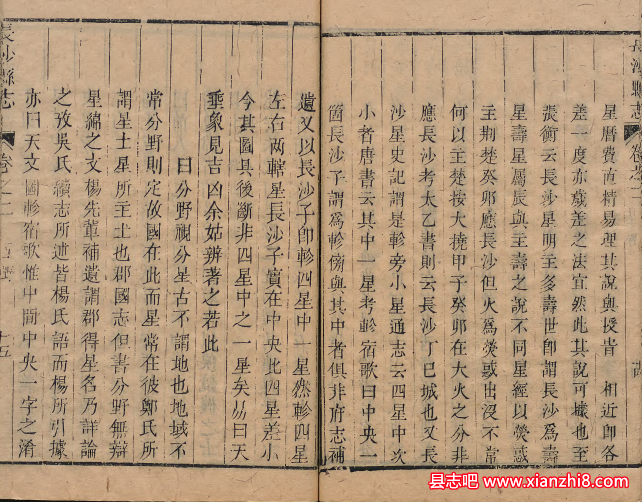 長沙縣志 卷之二
星曆費直精易理其說與授皆 相近卽各
差一度亦歲差之法宜然此其說可據也至
張衡云長沙星明主多壽世卽謂長沙爲壽
星壽星屬辰與主壽之說不同星經以熒惑
主荆楚癸卯應長沙但火爲熒或出沒不常
何以主楚按大撓甲子癸卯在大火之分非
應長沙考太乙書則云長沙丁巳城也又長
沙星史記謂是軫旁小星通志云四星中次
小者唐書云其中一星考軫宿歌曰中央一
箇長沙子謂爲軫傍與其中者俱非府志補
遺又以長沙子卽軫四星中一星然軫四星
左右两轄星長沙子實在中央此四星差小
今其圖具後斷非四星中之一星矣易曰天
垂象見吉凶余姑辨著之若此
曰分野視分星古不謂地也地域不
常分野則定故國在此而星常在彼鄭氏所
謂星土星所主土也郡國志但書分野無辯
星綿之文楊先輩補遺謂郡得星名乃詳論
之攷吳氏續志所述皆楊氏語而楊所引據
亦曰天文圖軫宿歌惟中間中央一字之淆
長沙縣志 卷之二 十五
县志吧 www.xianzhi8.com